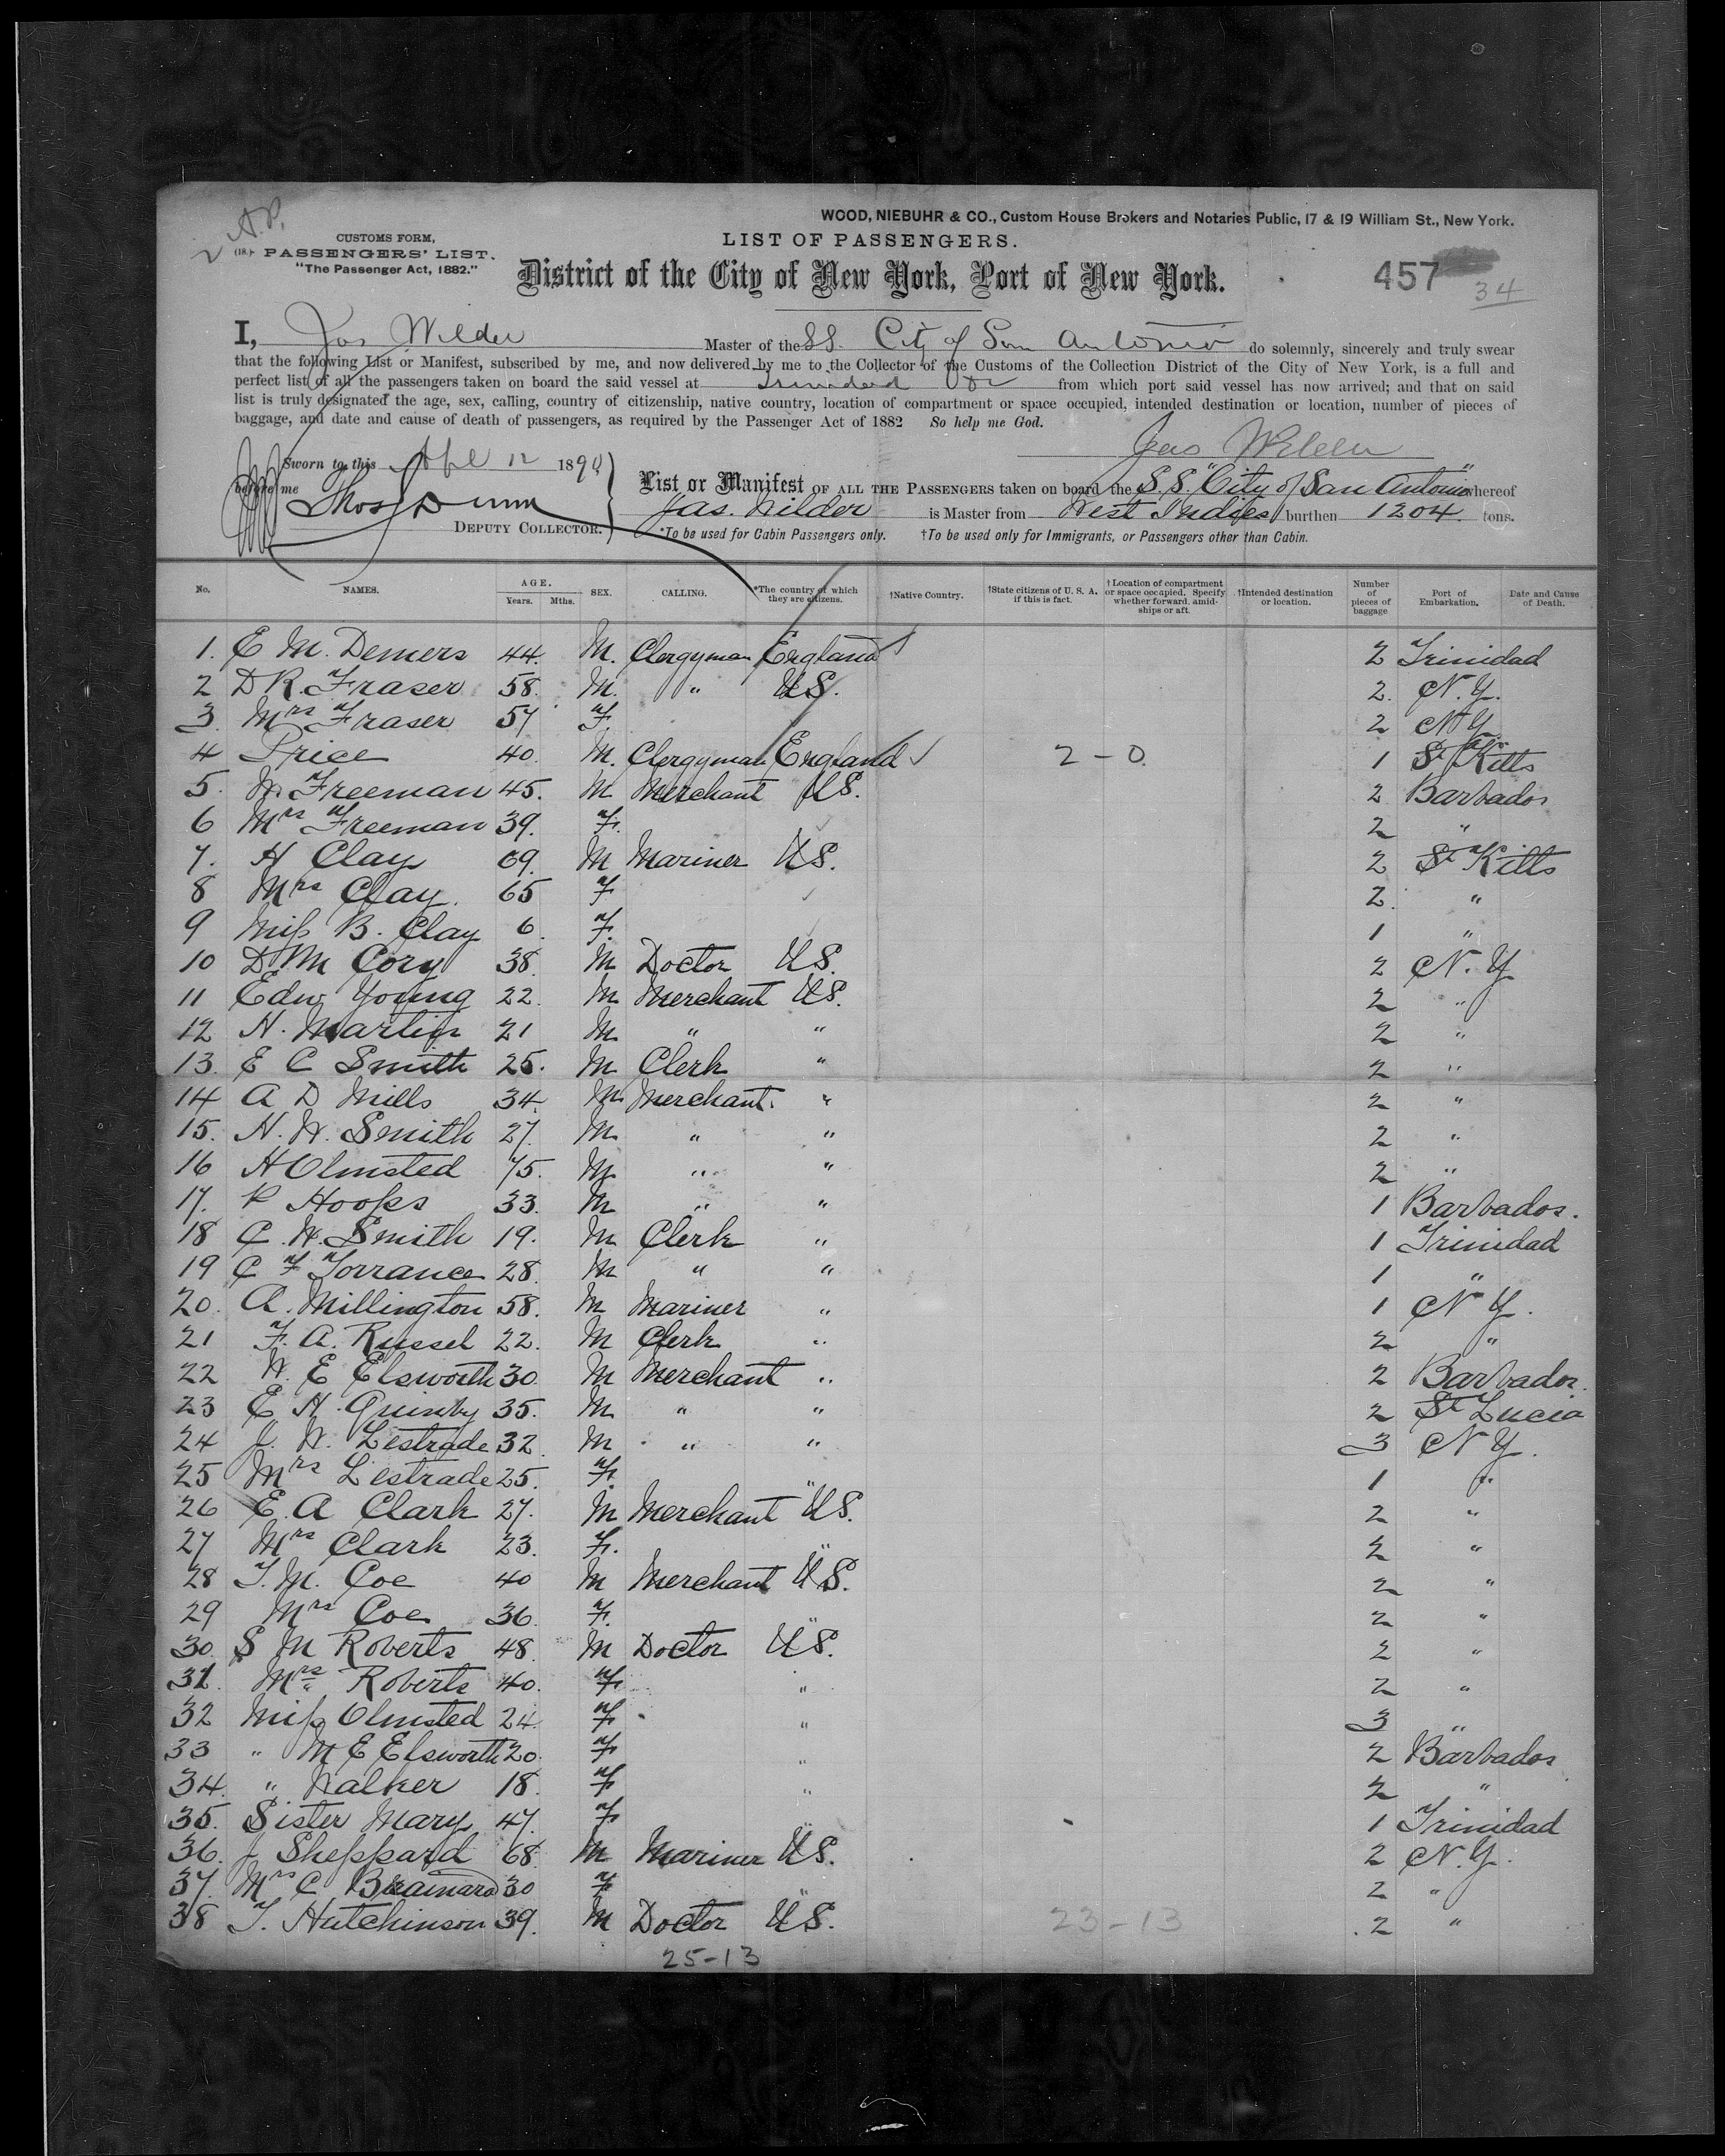 2 A.P.
WOOD, NIEBUHR & CO., Custom House Brokers and Notaries Public, 17 & 19 William St., New York.
CUSTOMS FORM,
LIST OF PASSENGERS.
(18.) PASSENGERS' LIST.
"The Passenger Act, 1882."
District of the City of New York, Port of New York.
457 34
I, Jas Wilder Master of the SS. City of San Antonio do solemnly, sincerely and truly swear
that the following List or Manifest, subscribed by me, and now delivered by me to the Collector of the Customs of the Collection District of the City of New York, is a full and
perfect list of all the passengers taken on board the said vessel at Trinidad from which port said vessel has now arrived; and that on said
list is truly designated the age, sex, calling, country of citizenship, native country, location of compartment or space occupied, intended destination or location, number of pieces of
baggage, and date and cause of death of passengers, as required by the Passenger Act of 1882 So help me God.
Jas Wilder
Sworn to this Apl 12 1890
before me Thos Dunn
DEPUTY COLLECTOR.
List or Manifest OF ALL THE PASSENGERS taken on board the S.S. "City of San Antonio" whereof
Jas. Wilder is Master from West Indies burthen 1204 tons.
*To be used for Cabin Passengers only. †To be used only for Immigrants, or Passengers other than Cabin.
No. NAMES. AGE. Years. Mths. SEX. CALLING. *The country of which they are citizens. †Native Country. †State citizens of U. S. A. if this is fact. †Location of compartment or space occupied. Specify whether forward, amidships or aft. †Intended destination or location. Number of pieces of baggage Port of Embarkation. Date and Cause of Death.
1. E M. Demers 44. M. Clergyman England 2 Trinidad
2 D R. Fraser 58. M. " U.S. 2. N.Y.
3. Mrs Fraser 57 F. 2 N.Y.
4 Price 40. M. Clergyman England 2 - 0 1 St Kitts
5. W. Freeman 45. M Merchant U.S. 2 Barbados
6 Mrs Freeman 39. F. 2 "
7. H Clay 69. M Mariner U.S. 2 St Kitts
8 Mrs Clay. 65 F 2. "
9 Miss B. Clay 6. F. 1 "
10 D M Cory 38. M Doctor U.S. 2 N.Y
11 Edw Young 22. M Merchant U.S. 2 "
12 H. Martin 21 M. " " 2 "
13. E C Smith 25. M Clerk " 2 "
14 A D Mills 34. M. Merchant. " 2 "
15. H. W. Smith 27. M. " " 2 "
16 H Olmsted 75. M " " 2 "
17. P Hoops 33. M " " 1 Barbados.
18 C. W. Smith 19. M Clerk " 1 Trinidad
19 C F Torrance 28. M " " 1 "
20. A. Millington 58. M Mariner " 1 N Y.
21 F. A. Russel 22. M Clerk " 2 "
22 W. E Elsworth 30 M Merchant " 2 Barbados.
23 E H. Quinby 35. M. " " 2 St Lucia
24 J. W. Lestrade 32 M " " 3 N Y.
25 Mrs Lestrade 25. F. " 1 "
26 E. A Clark 27. M Merchant U.S. 2 "
27 Mrs Clark 23. F. " 2 "
28 T. M. Coe 40 M Merchant U.S. 2 "
29 Mrs Coe 36. F. " 2 "
30. S M Roberts 48. M Doctor U.S. 2 "
31. Mrs Roberts 40. F " 2 "
32 Miss Olmsted 24. F " 3 "
33 " M E Elsworth 20. F " 2 Barbados
34. " Walker 18. F " 2 "
35. Sister Mary 47. F " 1 Trinidad
36. J Sheppard 68. M Mariner U.S. 2 N.Y.
37. Mrs C Brainard 30 F " 2 "
38 T. Hutchinson 39. M Doctor U.S. 23-13 2 "
25-13